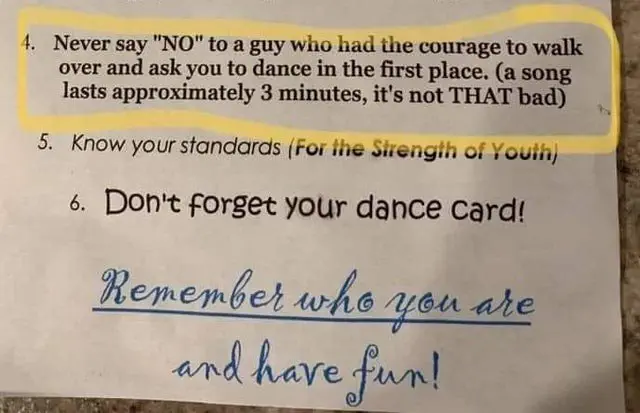 4. Never say "NO" to a guy who had the courage to walk
over and ask you to dance in the first place. (a song
lasts approximately 3 minutes, it's not THAT bad)
5. Know your standards (For the Strength of Youth)
6. Don't forget your dance card!
Remember who you are
and have fun!